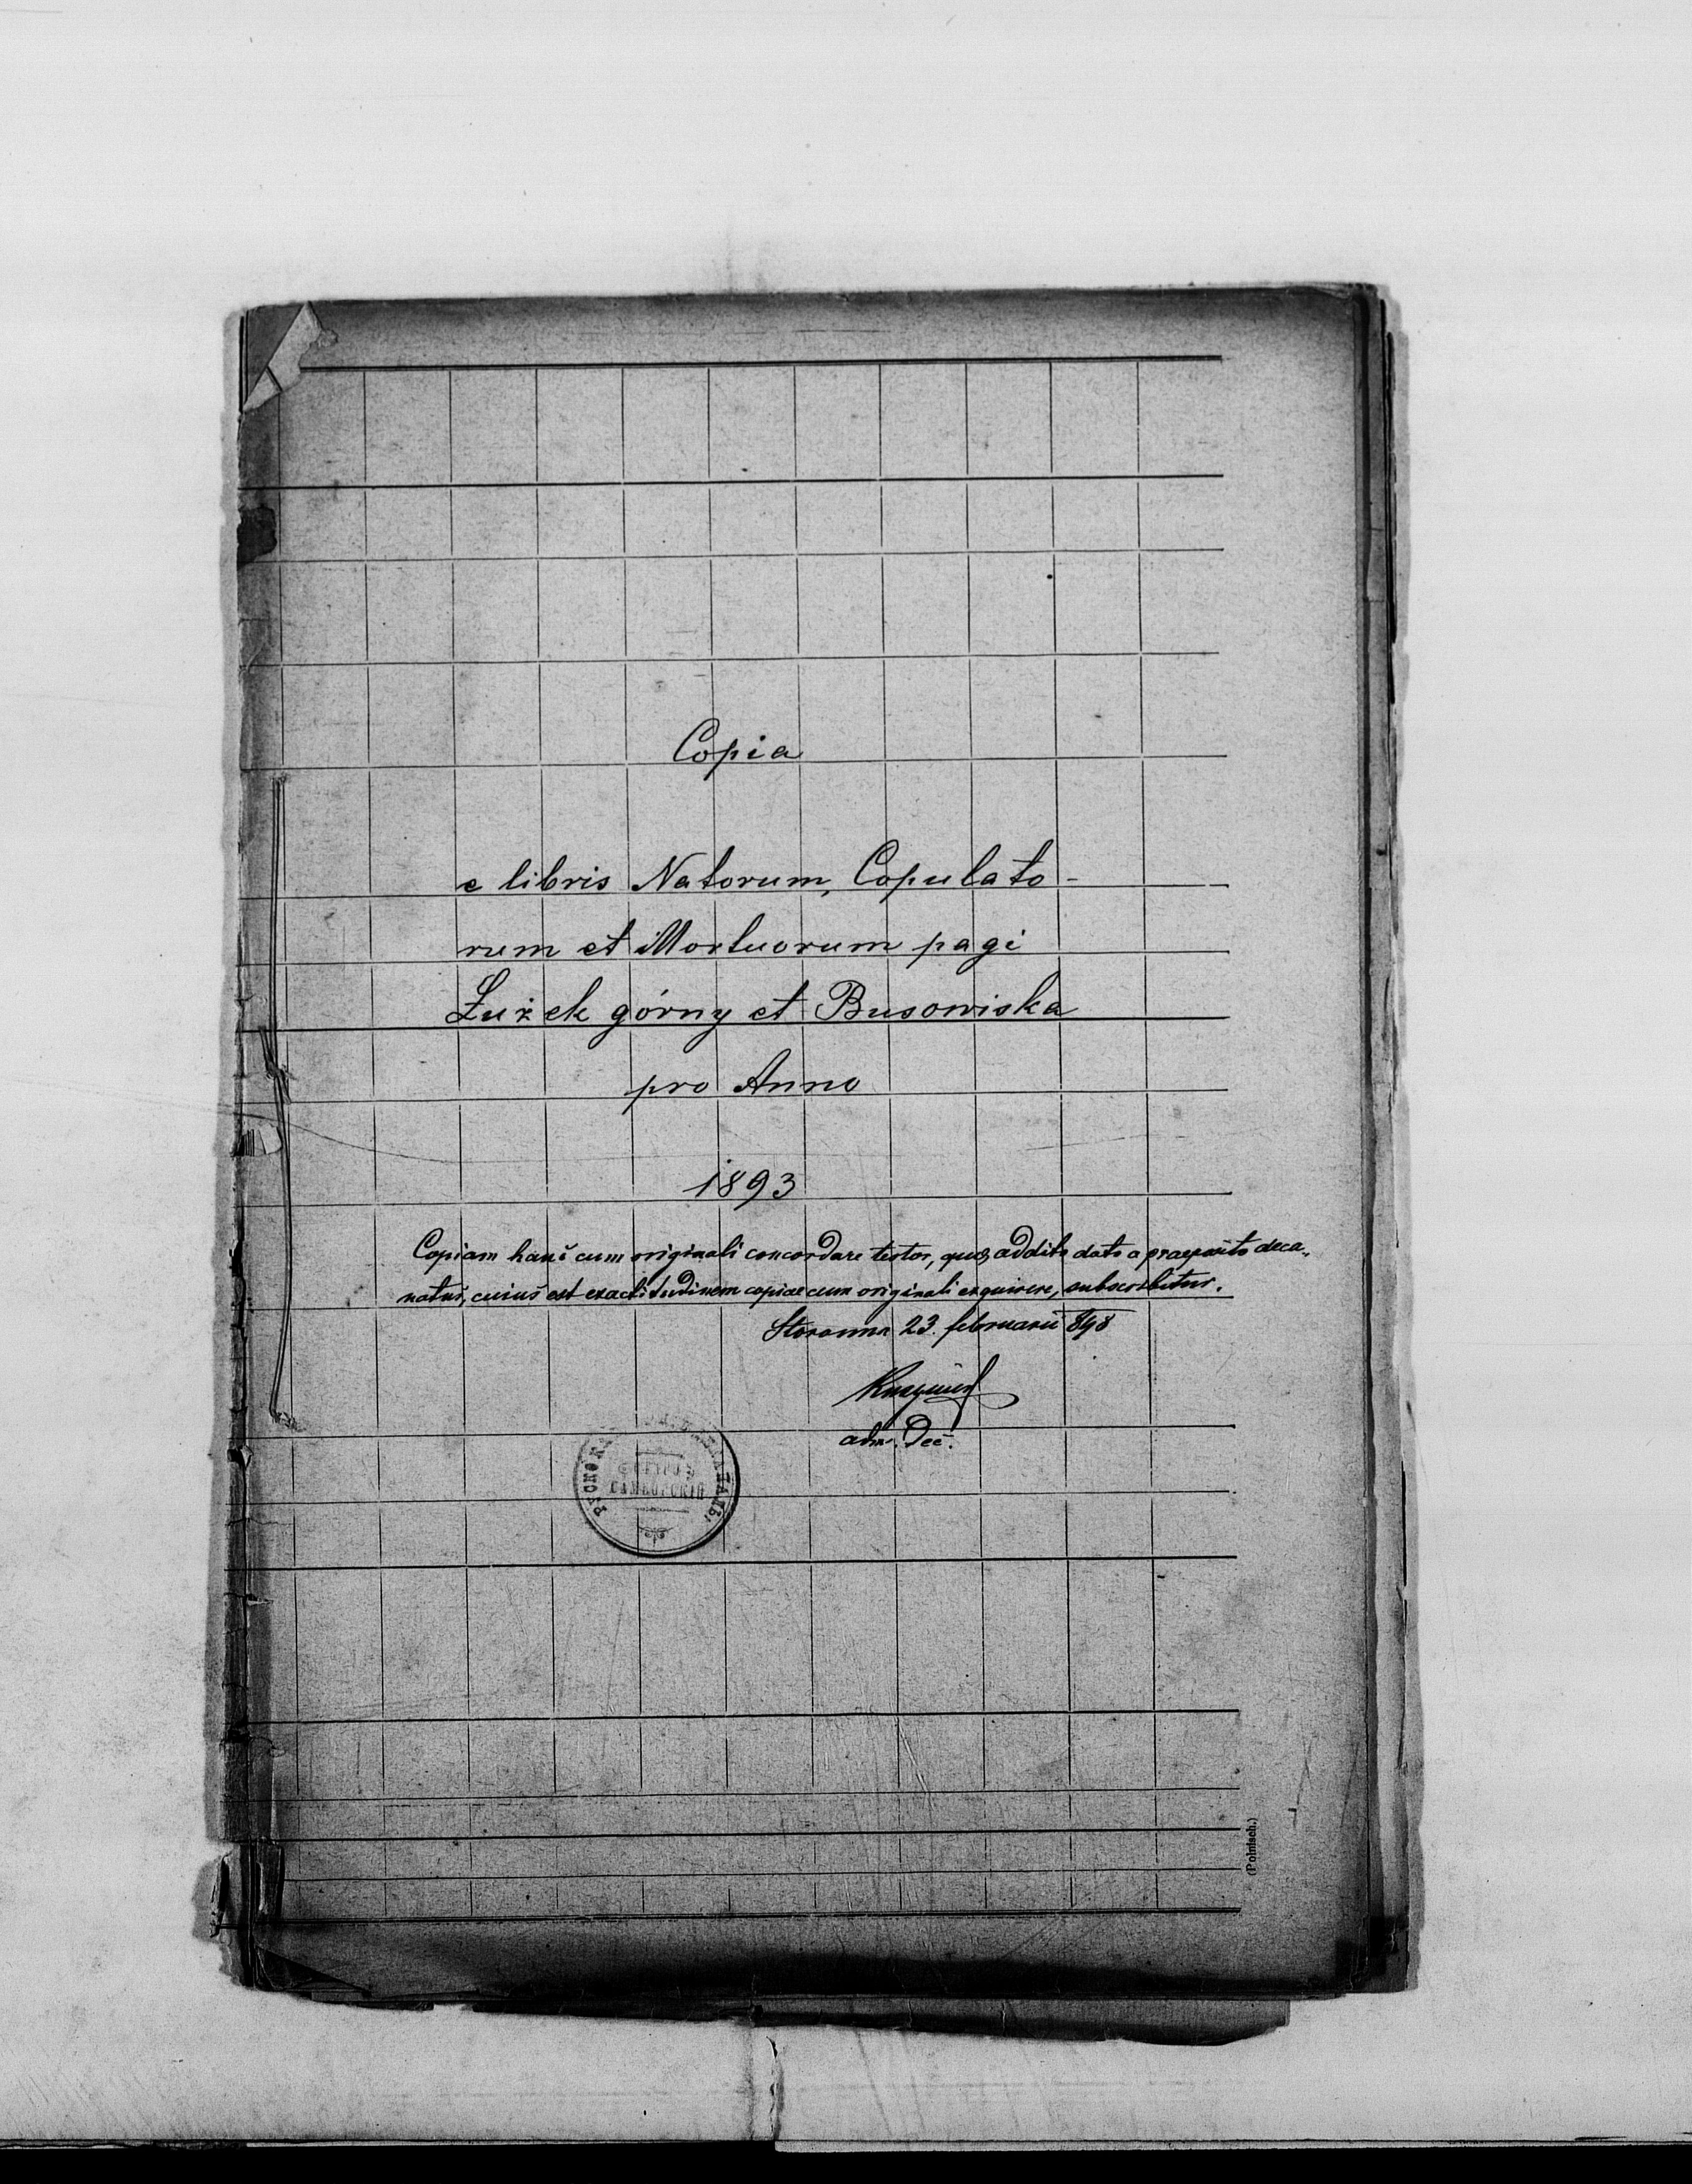 Copia
e libris Natorum, Copulato-
rum et Mortuorum pagi
Łużek górny et Busowiska
pro Anno
1893
Copiam hanc cum originali concordare testor, addito dato a praeposito deca-
natus, cuius est exactitudinem copiae cum originali exquirere, subscribitur.
23. februarii 898
adm. Dec.
(Polnisch.)